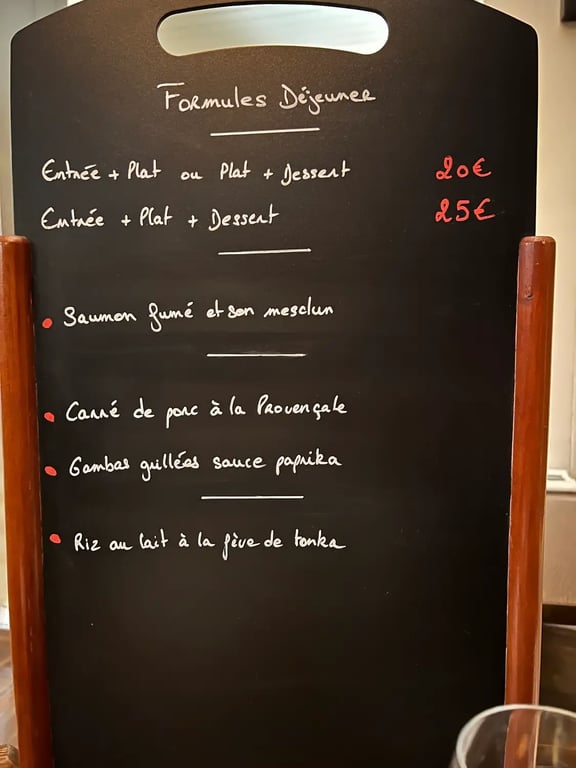 Formules Déjeuner
Entrée + Plat ou Plat + Dessert 20€
Entrée + Plat + Dessert 25€
Saumon fumé et son mesclun
Carré de porc à la Provençale
Gambas grillées sauce paprika
Riz au lait à la fève de tonka